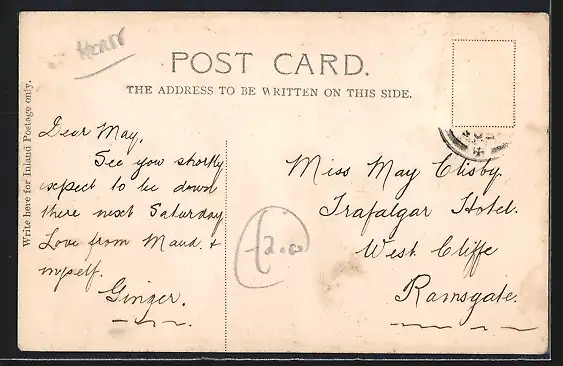 POST CARD.
THE ADDRESS TO BE WRITTEN ON THIS SIDE.
Write here for Inland Postage only.
Dear May,
See you shortly
expect to be down
there next Saturday
Love from Maud. &
myself.
Ginger.
Miss May Clisby.
Trafalgar Hotel.
West Cliffe
Ramsgate.